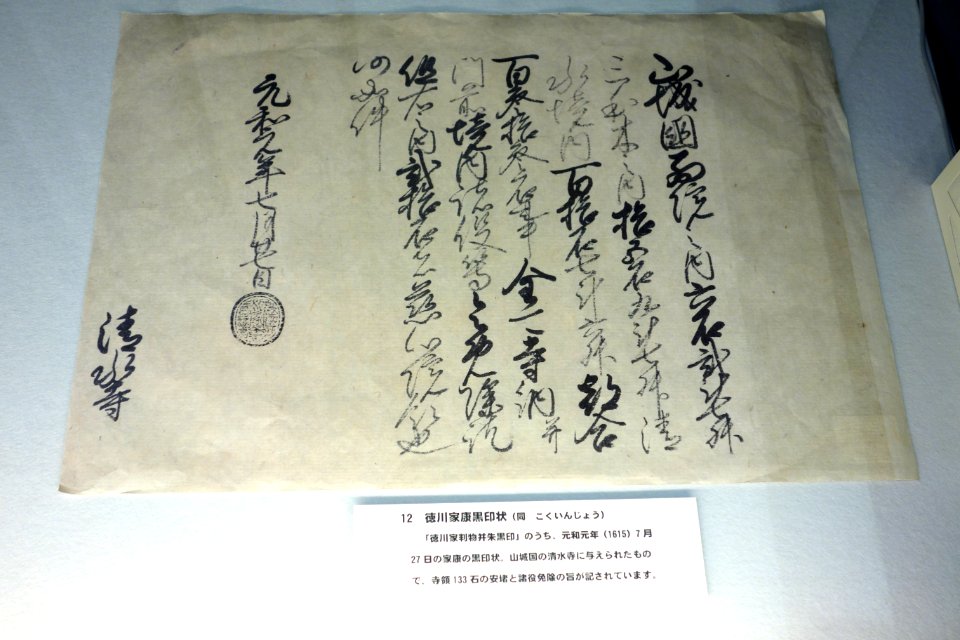 山城国西院之内六石弐斗七升
之内拾五石九斗七升清
水境内百拾石七斗六升都合
百参拾参石事全可寺納并
門前境内諸役等令免除訖
但右之内弐拾石
仍如件
元和元年七月廿七日
清水寺
12 徳川家康黒印状（同 こくいんじょう）
「徳川家判物并朱黒印」のうち、元和元年（1615）7月
27日の家康の黒印状。山城国の清水寺に与えられたもの
で、寺領133石の安堵と諸役免除の旨が記されています。